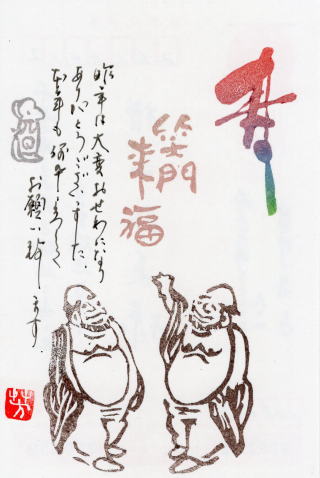 寿
笑門
来福
昨年は大変おせわになり
ありがとうございました.
本年も何卒よろしく
お願い致します.
芳